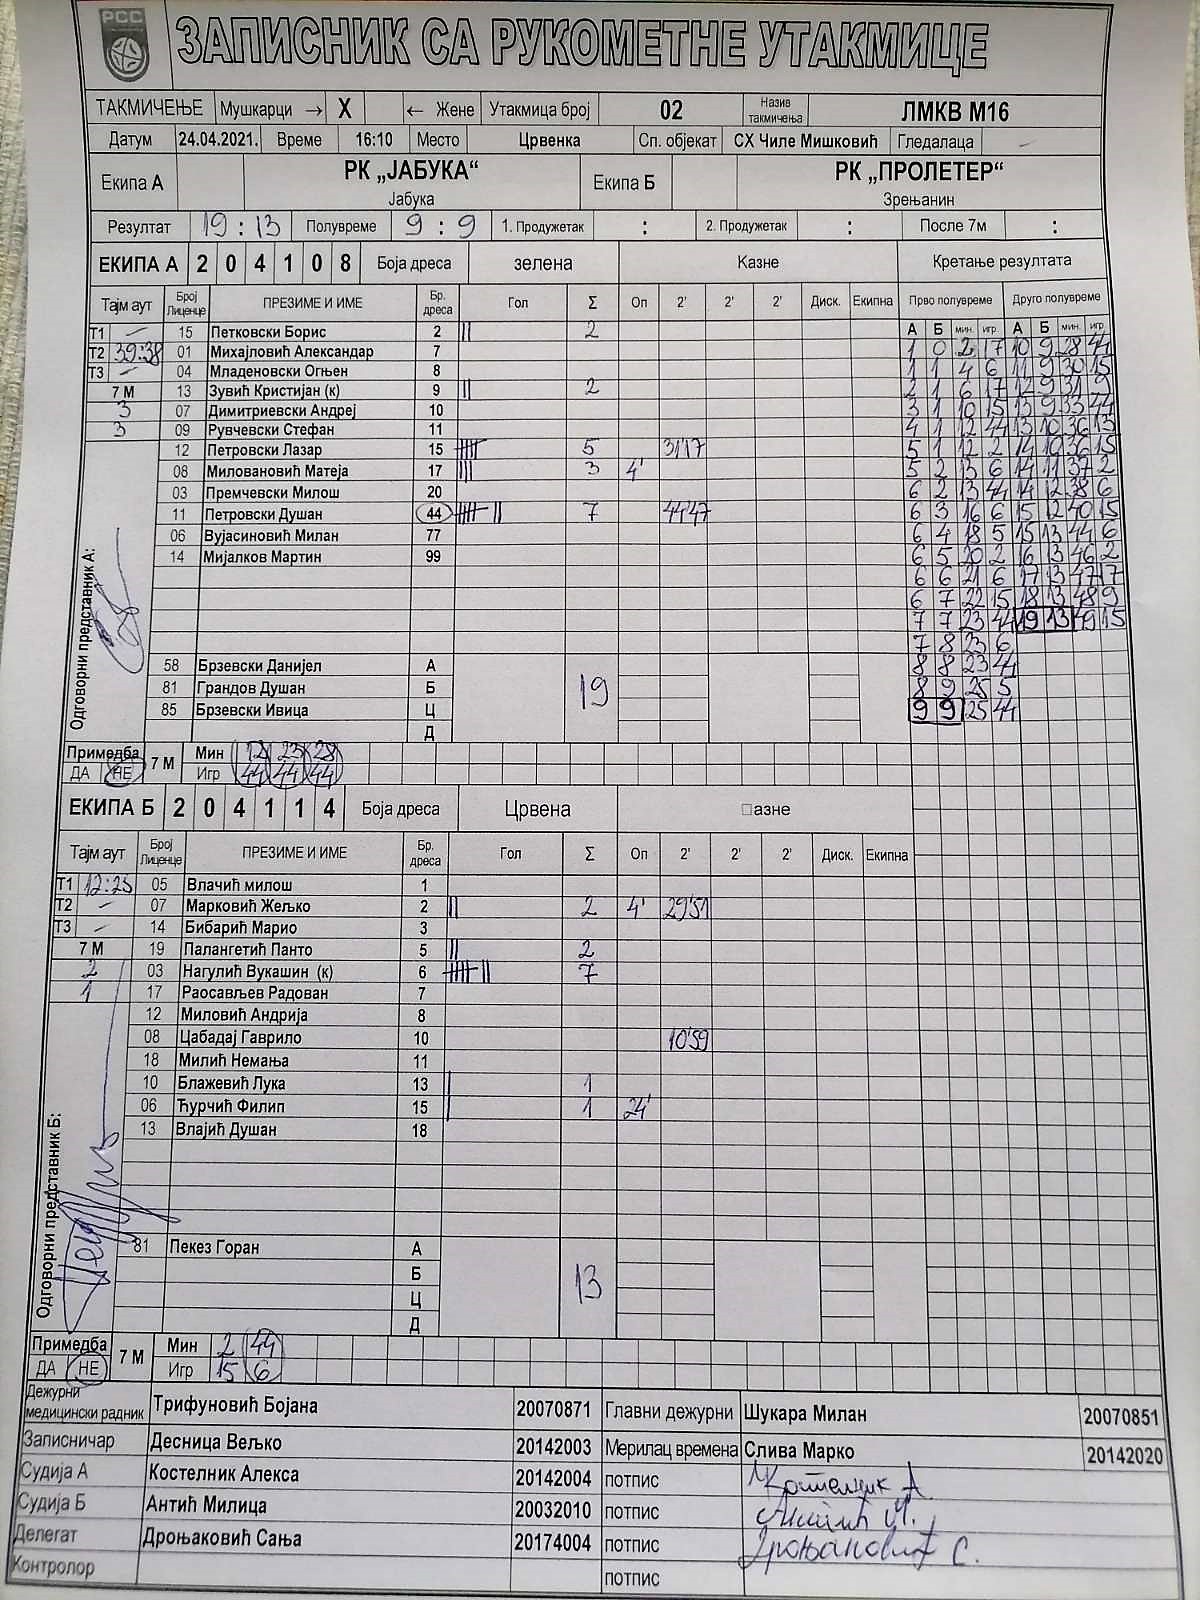 РСС
ЗАПИСНИК СА РУКОМЕТНЕ УТАКМИЦЕ
ТАКМИЧЕЊЕ Мушкарци → X ← Жене Утакмица број 02 Назив такмичења ЛМКВ М16
Датум 24.04.2021. Време 16:10 Место Црвенка Сп. објекат СХ Чиле Мишковић Гледалаца –
Екипа А РК „ЈАБУКА“ Јабука Екипа Б РК „ПРОЛЕТЕР“ Зрењанин
Резултат 19 : 13 Полувреме 9 : 9 1. Продужетак : 2. Продужетак : После 7м :
ЕКИПА А 2 0 4 1 0 8 Боја дреса зелена Казне Кретање резултата
Тајм аут Број Лиценце ПРЕЗИМЕ И ИМЕ Бр. дреса Гол Σ Оп 2' 2' 2' Диск. Екипна Прво полувреме Друго полувреме
А Б мин. игр А Б мин. игр
Т1 – 15 Петковски Борис 2 || 2
Т2 39:38 01 Михајловић Александар 7 1 0 2 17 10 9 28 44
Т3 – 04 Младеновски Огњен 8 1 1 4 6 11 9 30 15
7 М 13 Зувић Кристијан (к) 9 || 2 2 1 6 17 12 9 31 9
3 07 Димитриевски Андреј 10 3 1 10 15 13 9 33 44
3 09 Рувчевски Стефан 11 4 1 12 44 13 10 36 13
12 Петровски Лазар 15 5 31'17 5 1 12 2 14 10 36 15
08 Миловановић Матеја 17 ||| 3 4' 5 2 13 6 14 11 37 2
03 Премчевски Милош 20 6 2 13 44 14 12 38 6
11 Петровски Душан 44 7 44'47 6 3 16 6 15 12 40 15
06 Вујасиновић Милан 77 6 4 18 5 15 13 44 6
14 Мијалков Мартин 99 6 5 20 2 16 13 46 2
6 6 21 6 17 13 47 17
6 7 22 15 18 13 48 9
7 7 23 44 19 13 49 15
7 8 23 6
58 Брзевски Данијел А 8 8 23 44
81 Грандов Душан Б 19 8 9 25 5
85 Брзевски Ивица Ц 9 9 25 44
Д
Одговорни представник А:
Примедба ДА НЕ 7 М
Мин 12 23 28
Игр 44 44 44
ЕКИПА Б 2 0 4 1 1 4 Боја дреса Црвена □азне
Тајм аут Број Лиценце ПРЕЗИМЕ И ИМЕ Бр. дреса Гол Σ Оп 2' 2' 2' Диск. Екипна
Т1 12:25 05 Влачић милош 1
Т2 – 07 Марковић Жељко 2 || 2 4' 29'51
Т3 – 14 Бибарић Марио 3
7 М 19 Палангетић Панто 5 || 2
2 03 Нагулић Вукашин (к) 6 7
1 17 Раосављев Радован 7
12 Миловић Андрија 8
08 Цабадај Гаврило 10 10'59
18 Милић Немања 11
10 Блажевић Лука 13 | 1
06 Ђурчић Филип 15 | 1 24'
13 Влајић Душан 18
81 Пекез Горан А
Б 13
Ц
Д
Одговорни представник Б:
Примедба ДА НЕ 7 М
Мин 2 44
Игр 15 6
Дежурни медицински радник Трифуновић Бојана 20070871 Главни дежурни Шукара Милан 20070851
Записничар Десница Вељко 20142003 Мерилац времена Слива Марко 20142020
Судија А Костелник Алекса 20142004 потпис Костелник А
Судија Б Антић Милица 20032010 потпис Антић М.
Делегат Дроњаковић Сања 20174004 потпис Дроњаковић С.
Контролор потпис